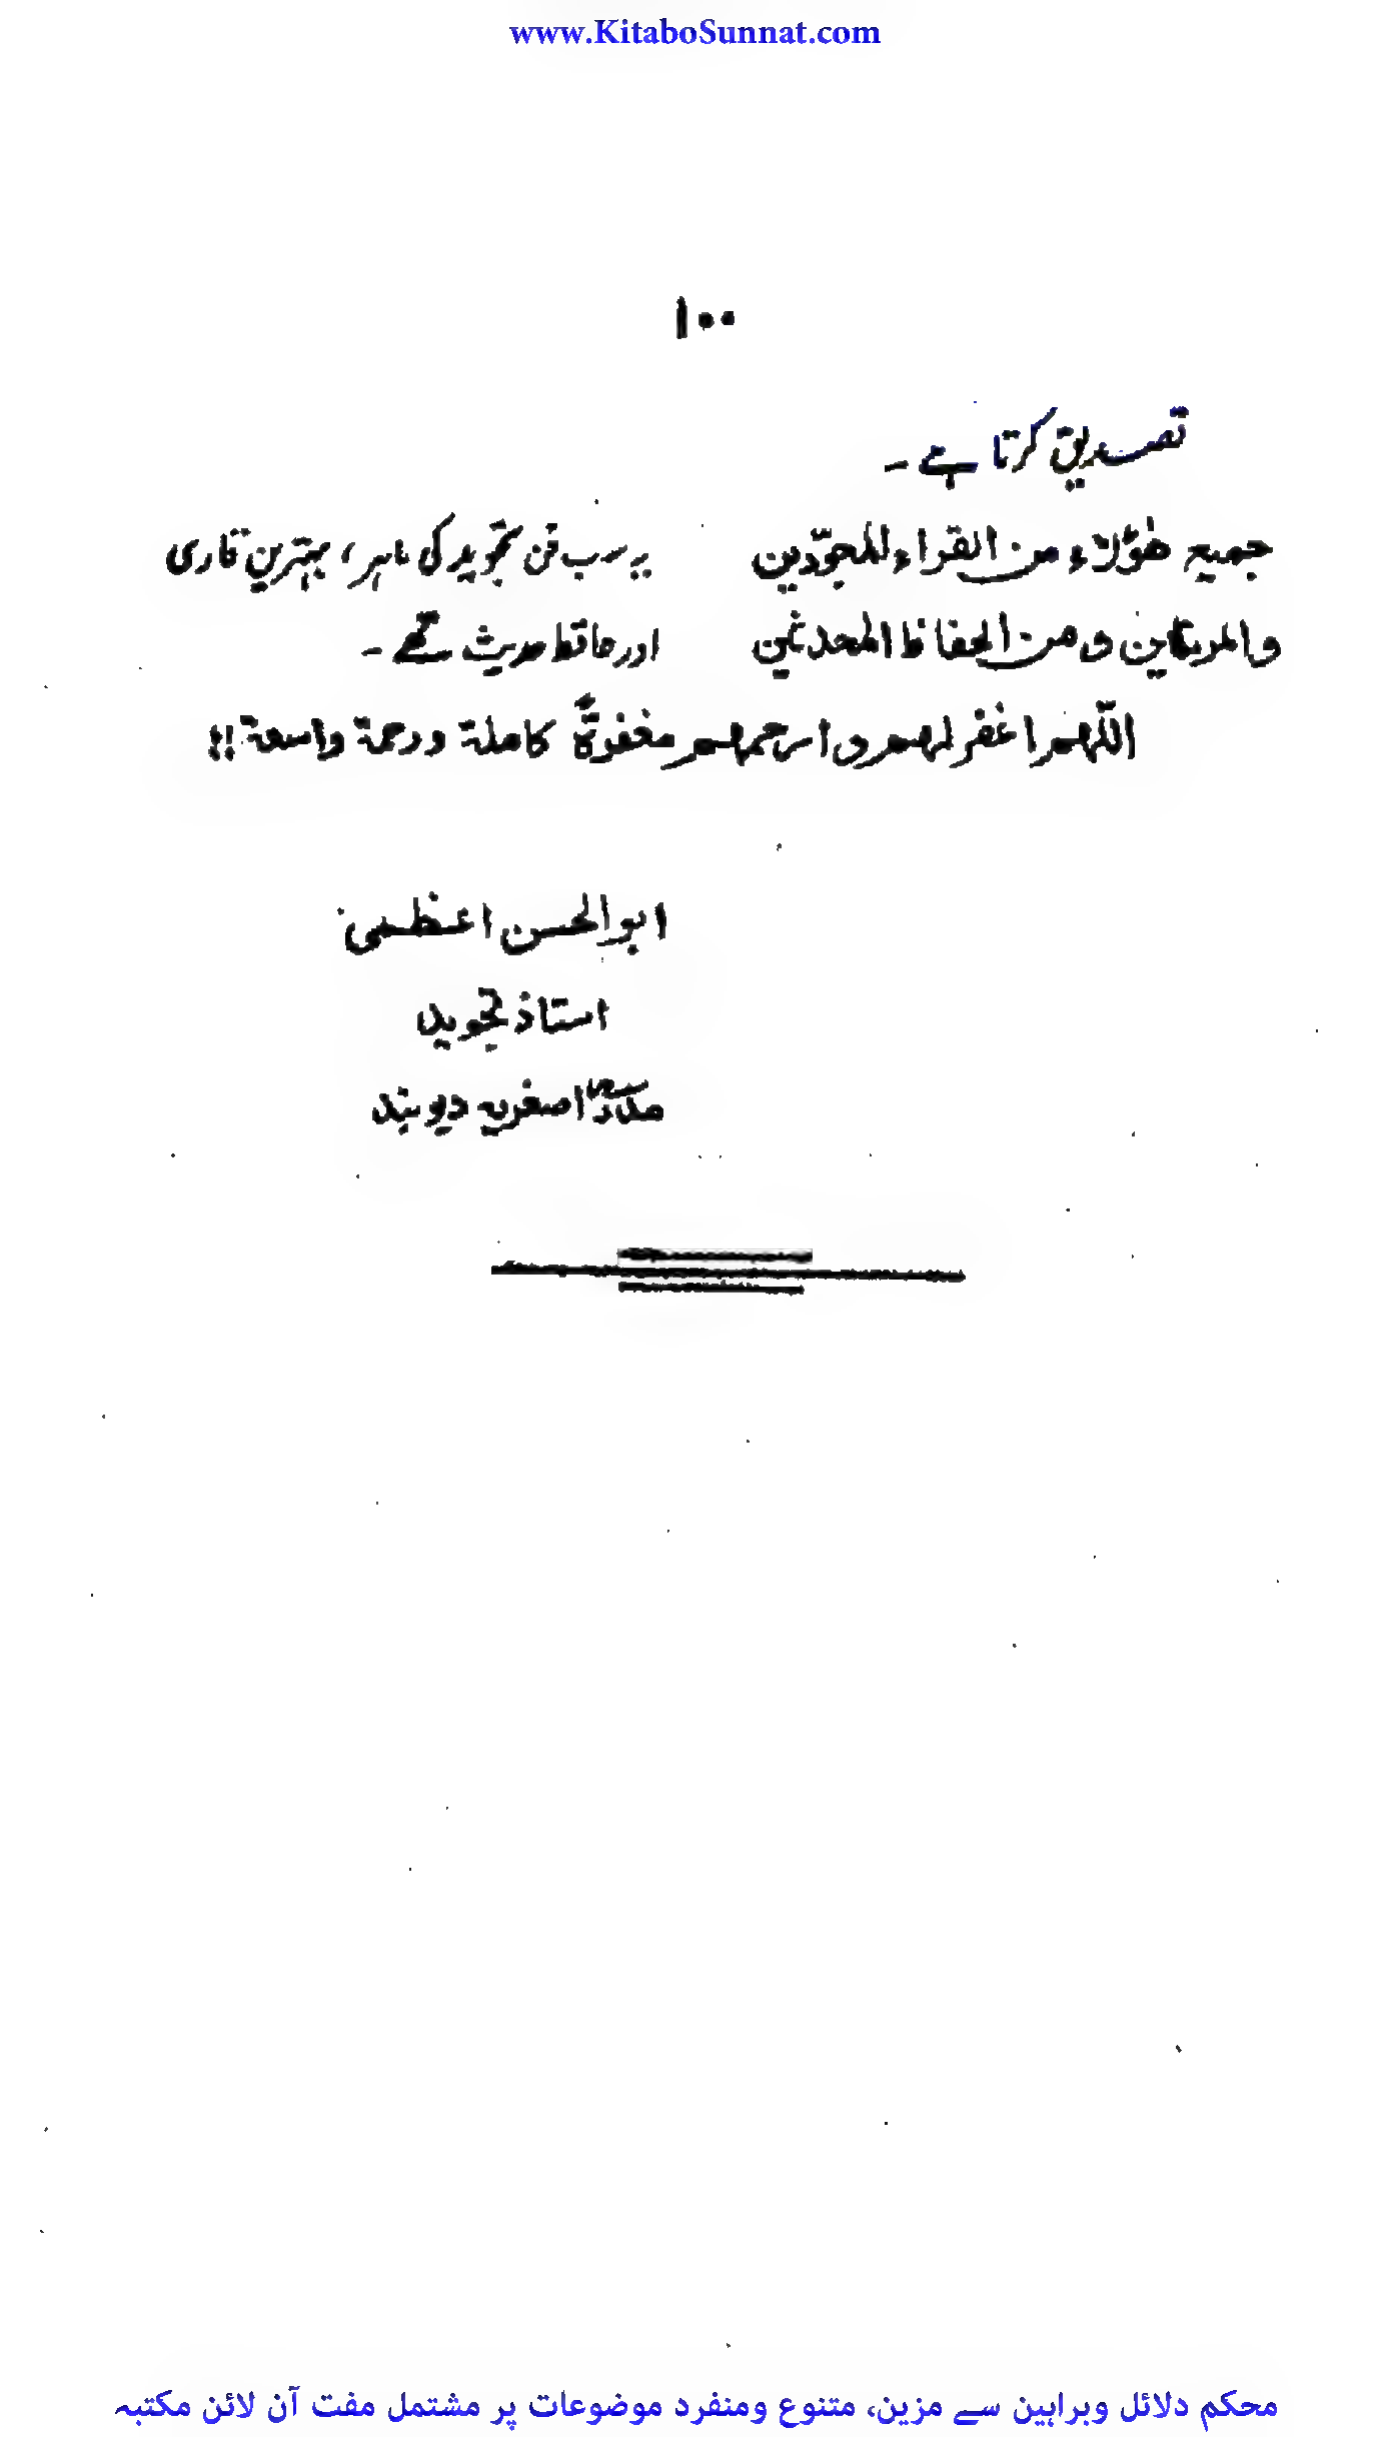 www.KitaboSunnat.com
۱۰۰
تصدیق کرتا ہے ۔
جمیع ھٰؤلاء من القراء للمجوّدین
والمرتلین ومن الحفاظ المحدثین
یہ سب فن تجوید کی ماہر، بہترین قاری
اور حافظ حدیث تھے ۔
اللّٰھم اغفر لھم وارحمھم مغفرةً کاملة ورحمة واسعة !!
ابوالحسن اعظمی
استاذ تجوید
مدرسہ اصغریہ دیوبند
محکم دلائل وبراہین سے مزین، متنوع ومنفرد موضوعات پر مشتمل مفت آن لائن مکتبہ